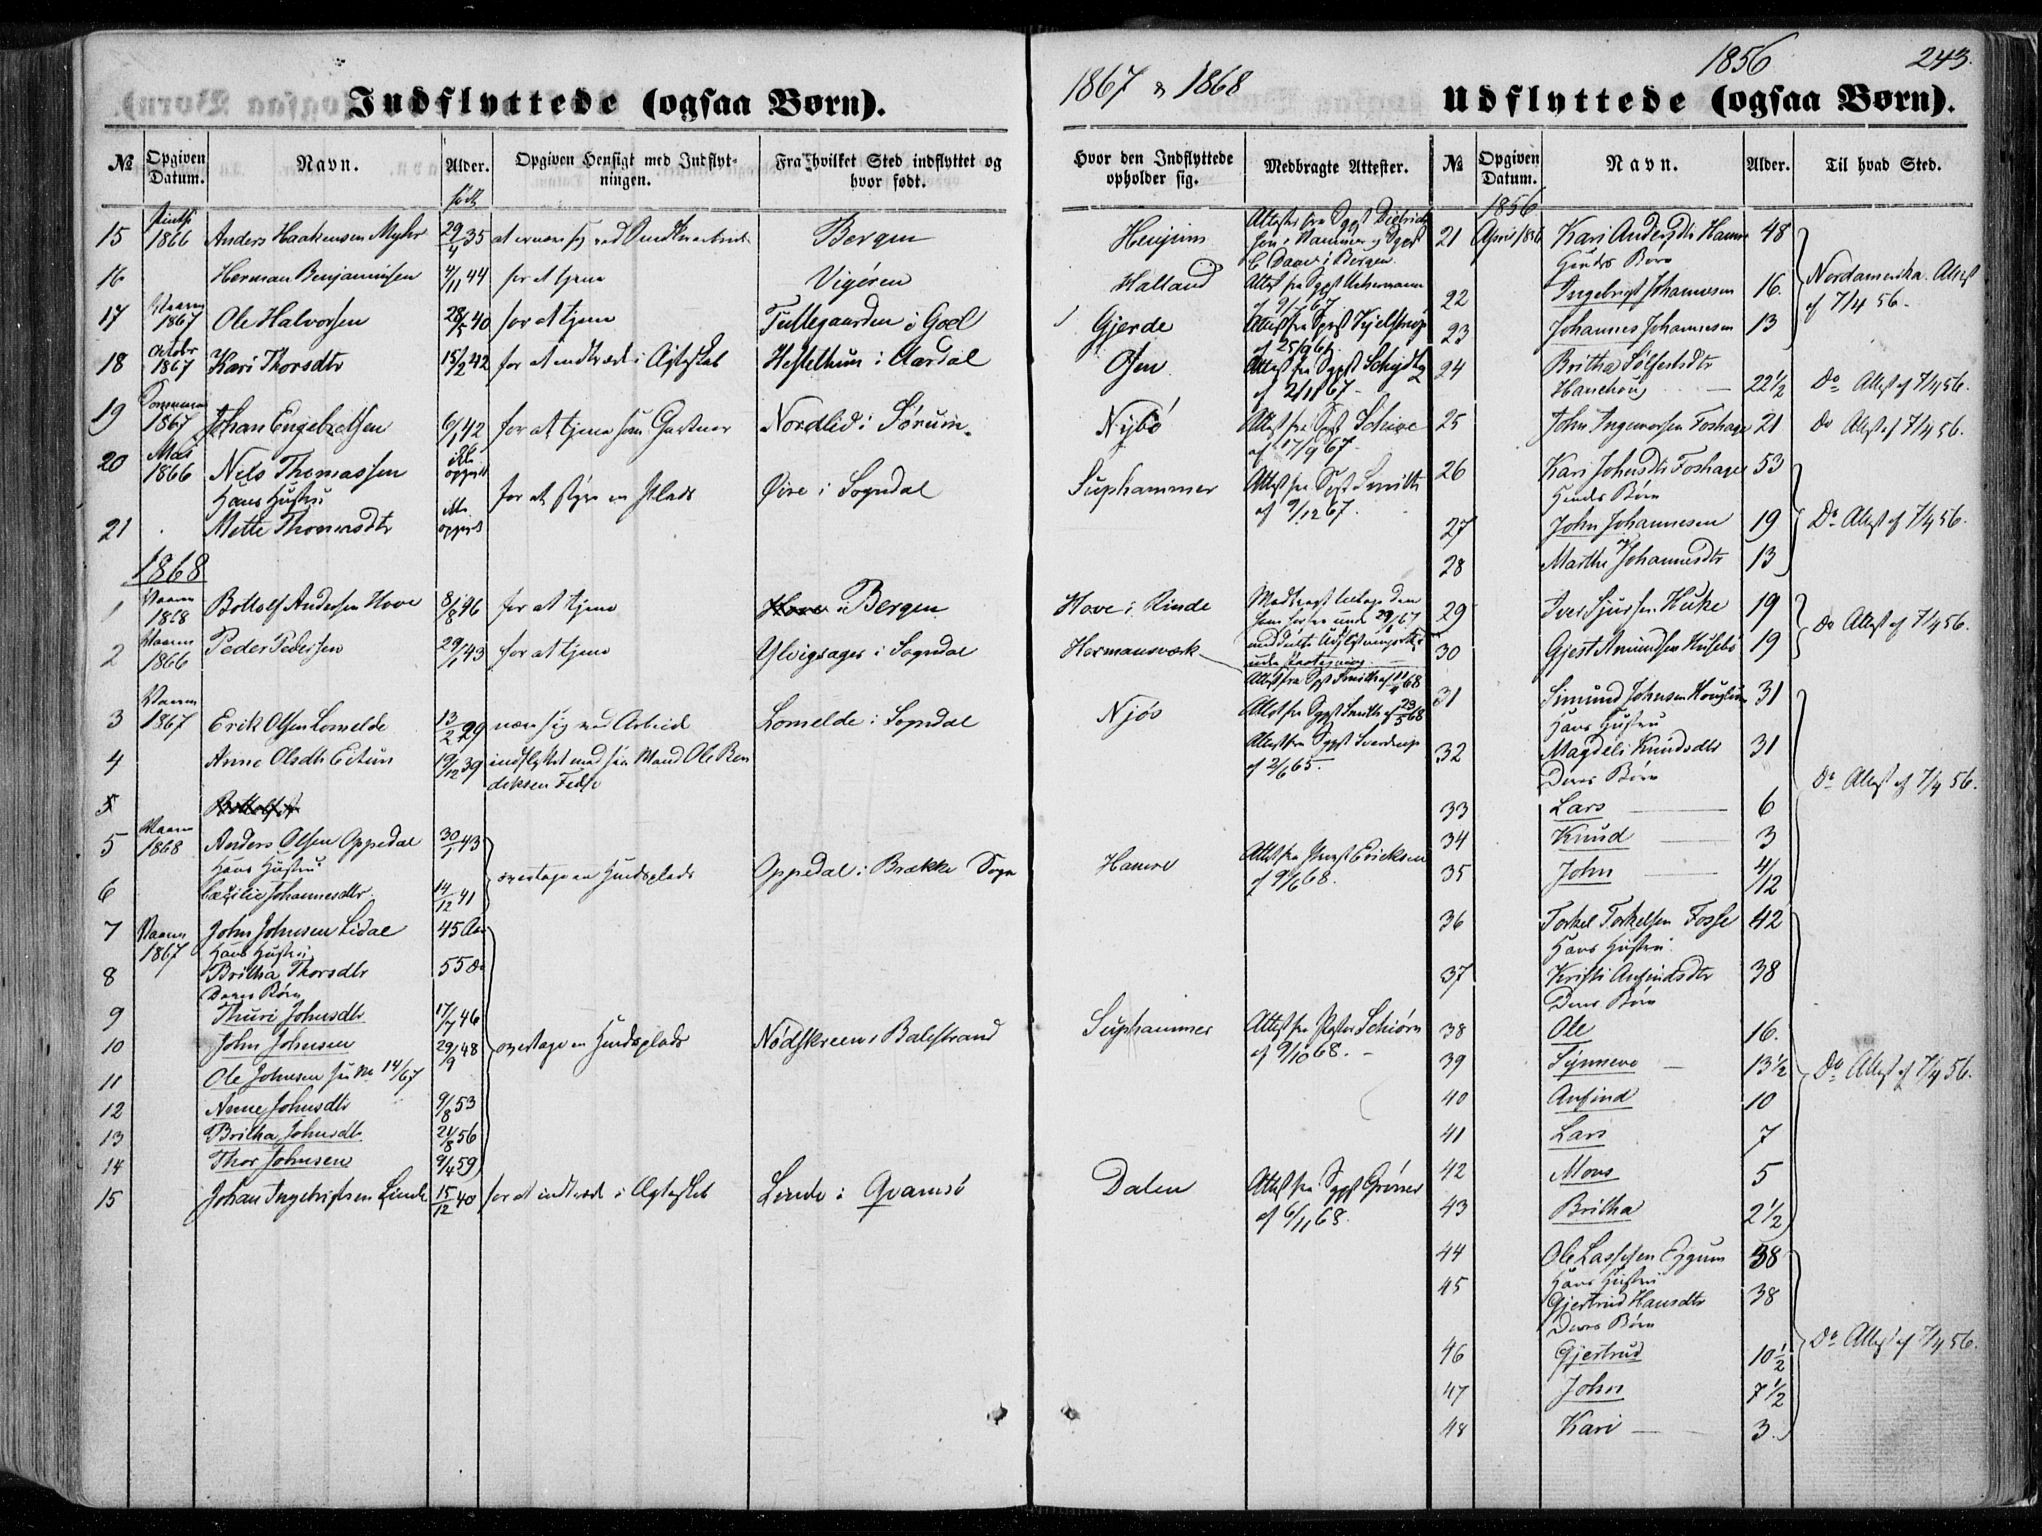 Indflyttede (ogsaa Børn).
1867 & 1868
1856
243.
Udflyttede (ogsaa Børn).
№ Opgiven Datum. Navn. Alder. Opgiven Hensigt med Indflytningen. Fra hvilket Sted indflyttet og hvor født. Hvor den Indflyttede opholder sig. Medbragte Attester.
født
15 1866 Anders Haakensen Myhr 29/4 35 Bergen Henjum
16 Herman Benjaminsen 4/11 44 for at tjene Vigøren Halland
17 Vaaren 1867 Ole Halvorsen 28/5 40 for at tjene Tuftegaarden i Gol Gjerde
18 October 1867 Kari Thorsdtr 15/2 42 for at indtræde i Ægteskab Hestethun i Aardal Osen
19 Sommeren 1867 Johan Engebretsen 6/1 42 for at tjene som Gartner Nordlid i Sørum. Nybø Attest fra Sgpst Schive af 17/9 67.
20 Mai 1866 Nils Thomassen ikke opgivet for at styre en Plads Øvre i Sogndal Suphammer Attest fra Sgpst Smith af 9/12 67.
Hans Hustru
21 Mette Thomasdtr ikke opgivet
1868
1 Vaaren 1868 Bottolf Andersen Hove 8/8 46 for at tjene Bergen Hove i Rinde
2 Vaaren 1866 Peder Pedersen 29/1 43 for at tjene Ylvisager i Sogndal Hermansværk Attest fra Sgpst Smith af 11/4 68
3 Vaaren 1867 Erik Olsen Lomelde 13/2 29 nære sig ved Arbeide Lomelde i Sogndal Njøs Attest fra Sgpst Smith af 29/5 68
4 Anne Olsdtr Eitun 19/12 39 indflyttet med sin Mand Ole Bendiksen Attest fra Sgpst Sverdrup af 2/6 65.
5
5 Vaaren 1868 Anders Olsen Oppedal 30/1 43 overtage en Huusplads Oppedal i Brække Sogn Hamre Attest fra Præst Ericksen af 9/6 68.
Hans Hustru
6 Cæcilie Johannesdtr 14/12 41
7 Vaaren 1867 John Johnsen Lidal 45 Aar
Hans Hustru
8 Britha Thorsdtr 55 Do
Deres Børn
9 Thuri Johnsdtr 17/7 46
10 John Johnsen 29/9 48 overtage en Huusplads Nødskreen i Balestrand Suphammer Attest fra Pastor Schiørn af 9/10 68.
11 Ole Johnsen sen № 14/67
12 Anne Johnsdtr 9/8 53
13 Britha Johnsdtr 21/8 56
14 Thor Johnsen 9/4 59
15 Johan Ingebrigtsen Linde 15/12 40 for at indtræde i Ægteskab Linde i Qvamsø Dalen Attest fra Sgpst Grøner af 6/11 68.
№ Opgiven Datum. Navn. Alder. Til hvad Sted.
1856
21 April 1856 Kari Andersdtr Hamre 48
Hendes Børn
22 Ingebrigt Johannesen 16. Nordamerika. Attest af 7/4 56.
23 Johannes Johannesen 13
24 Britha Sølfestsdtr 22½ Do Attest af 7/4 56.
25 John Ingvorsen Foshage 21 Do Attest af 7/4 56.
26 Kari Johnsdtr Foshage 53
Hendes Børn
27 John Johannesen 19 Do Attest af 7/4 56.
28 Marthe Johannesdtr 13
29 Iver Sjursen Huke 19 Do Attest af 7/4 56.
30 Gjest Amundsen Husebø 19
31 Simund Johnsen 31
Hans Hustru
32 Magdeli Knudsdtr 31
Deres Børn Do Attest af 7/4 56.
33 Lars 6
34 Knud 3
35 John 4/12
36 Torkel Torkelsen Fosse 42
Hans Hustru
37 Kristi Anfindsdtr 38
Deres Børn
38 Ole 16.
39 Synneve 13½ Do Attest af 7/4 56.
40 Anfind 10
41 Lars 7
42 Mons 5
43 Britha 2½
44 Ole Lassesen Eggum 38
45 Hans Hustru
Gjertrud Hansdtr 38
Deres Børn Do Attest af 7/4 56.
46 Gjertrud 10½
47 John 7½
48 Kari 3.